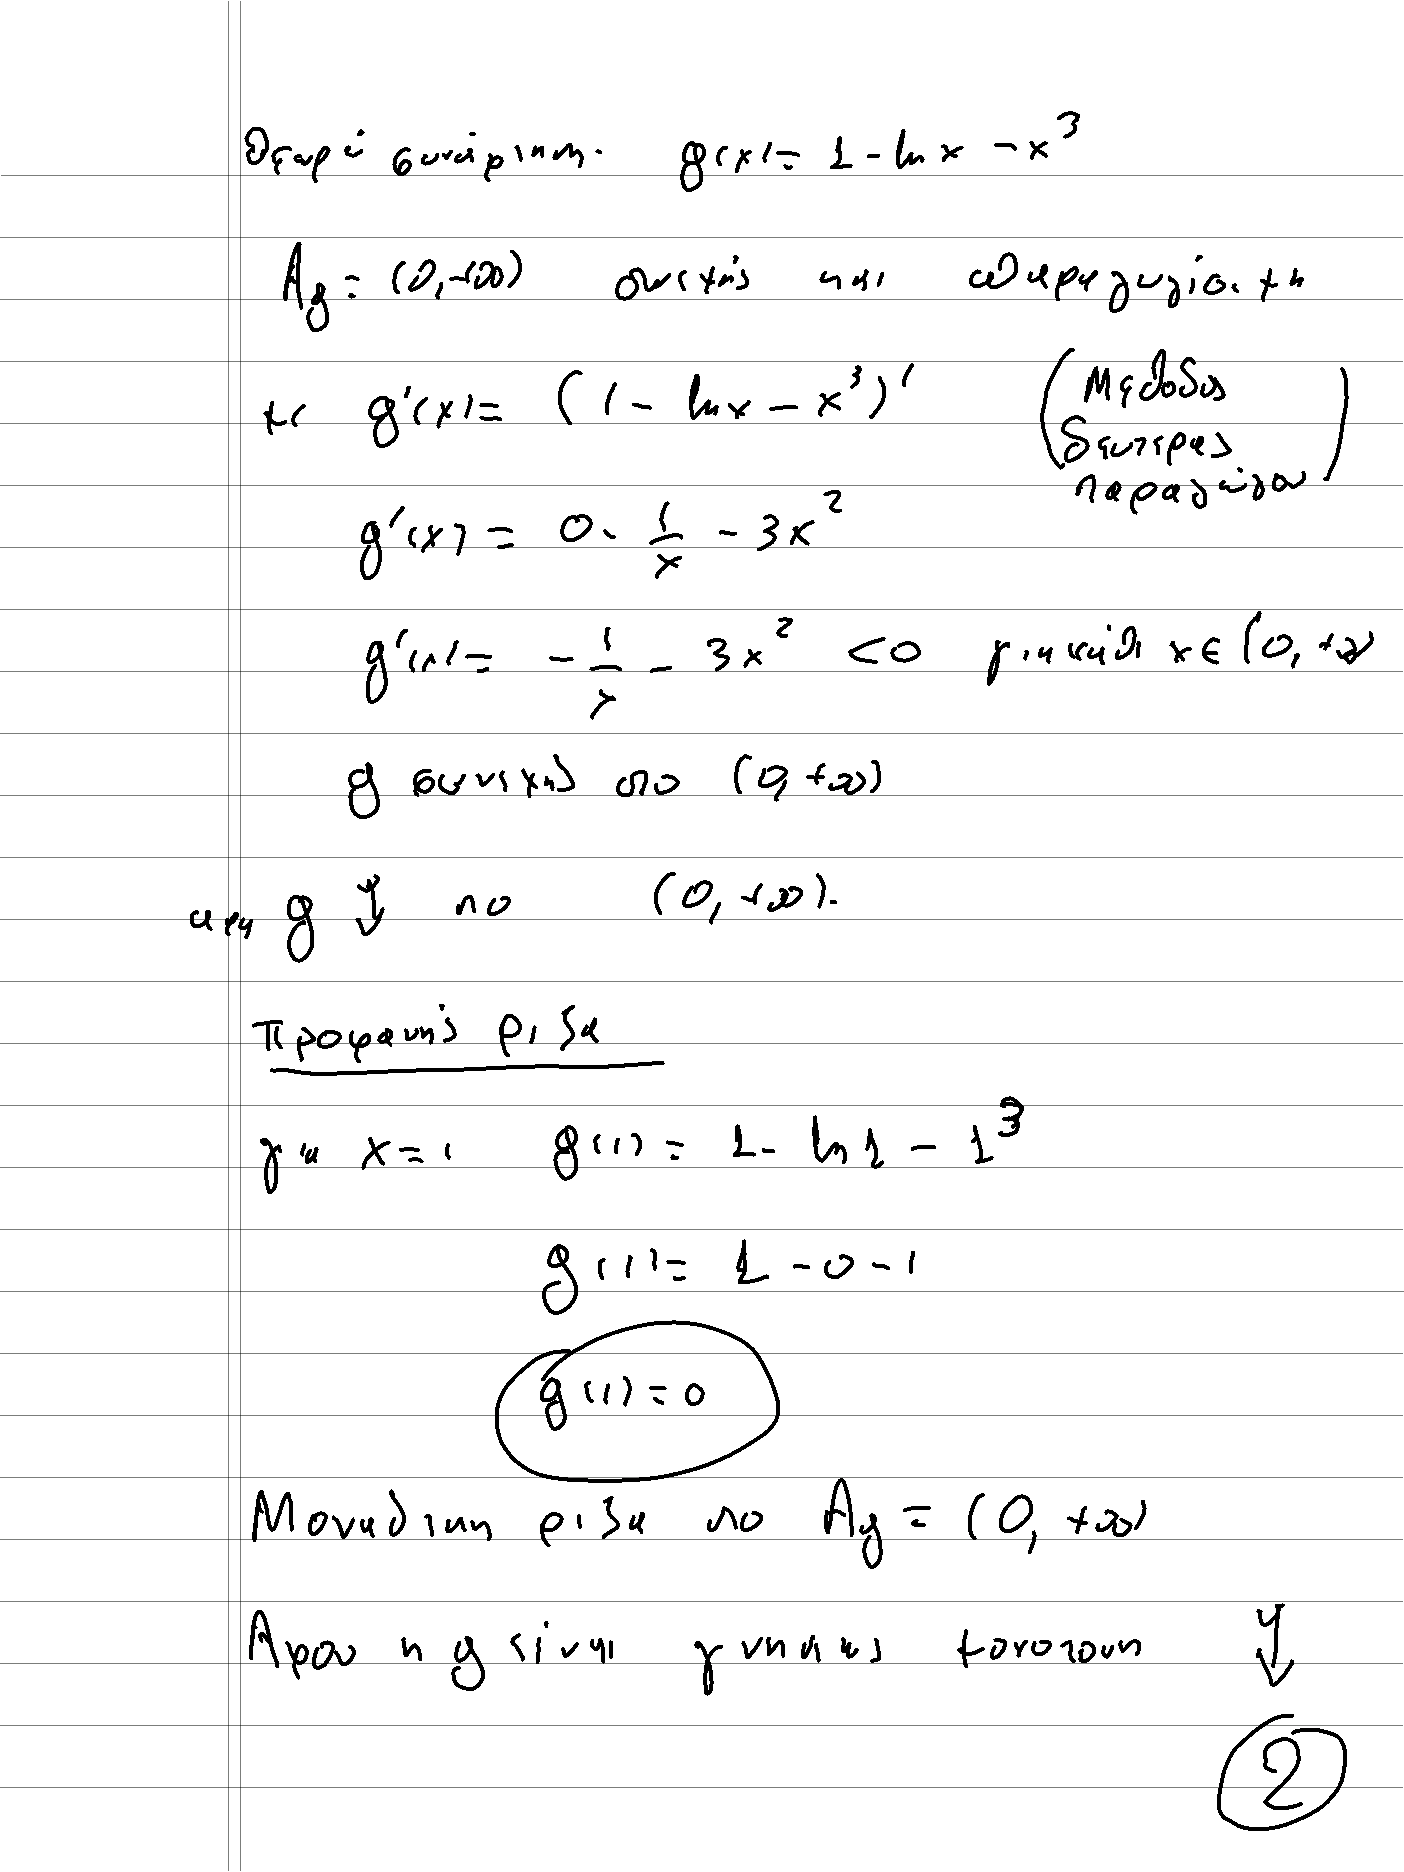 Θεωρώ συνάρτηση. g(x) = 1 - ln x - x³
Ag = (0, +∞) συνεχής και παραγωγίσιμη
με g'(x) = (1 - ln x - x³)'
(Μέθοδος
δευτέρας
παραγώγου)
g'(x) = 0 - 1/x - 3x²
g'(x) = - 1/x - 3x² < 0 για κάθε x ∈ (0, +∞)
g συνεχής στο (0, +∞)
αρα g ↓ στο (0, +∞).
Προφανής ριζα
για x = 1 g(1) = 1 - ln 1 - 1³
g(1) = 1 - 0 - 1
g(1) = 0
Μοναδικη ριζα στο Ag = (0, +∞)
Αφου η g είναι γνησιως μονοτονη ↓
2